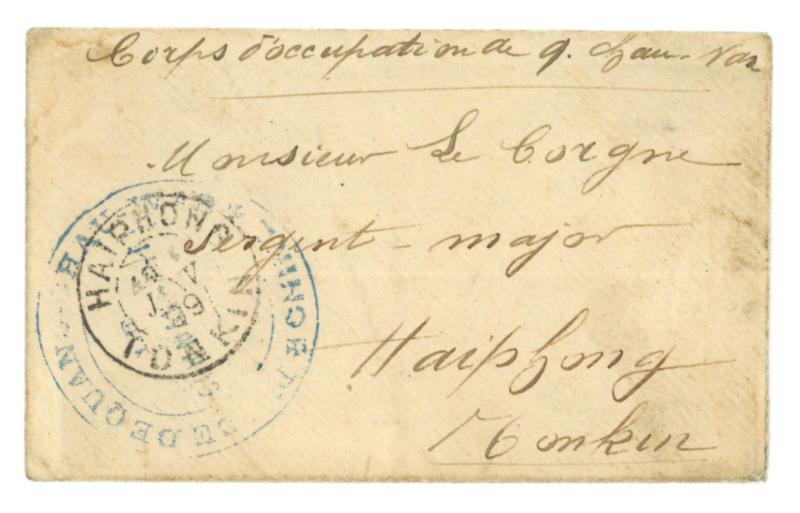 Corps d'occupation de q. chau-Van
Monsieur Le Corgne
Sergent-major
Haiphong
Tonkin
HAIPHONG
TONKIN
DE QUANG